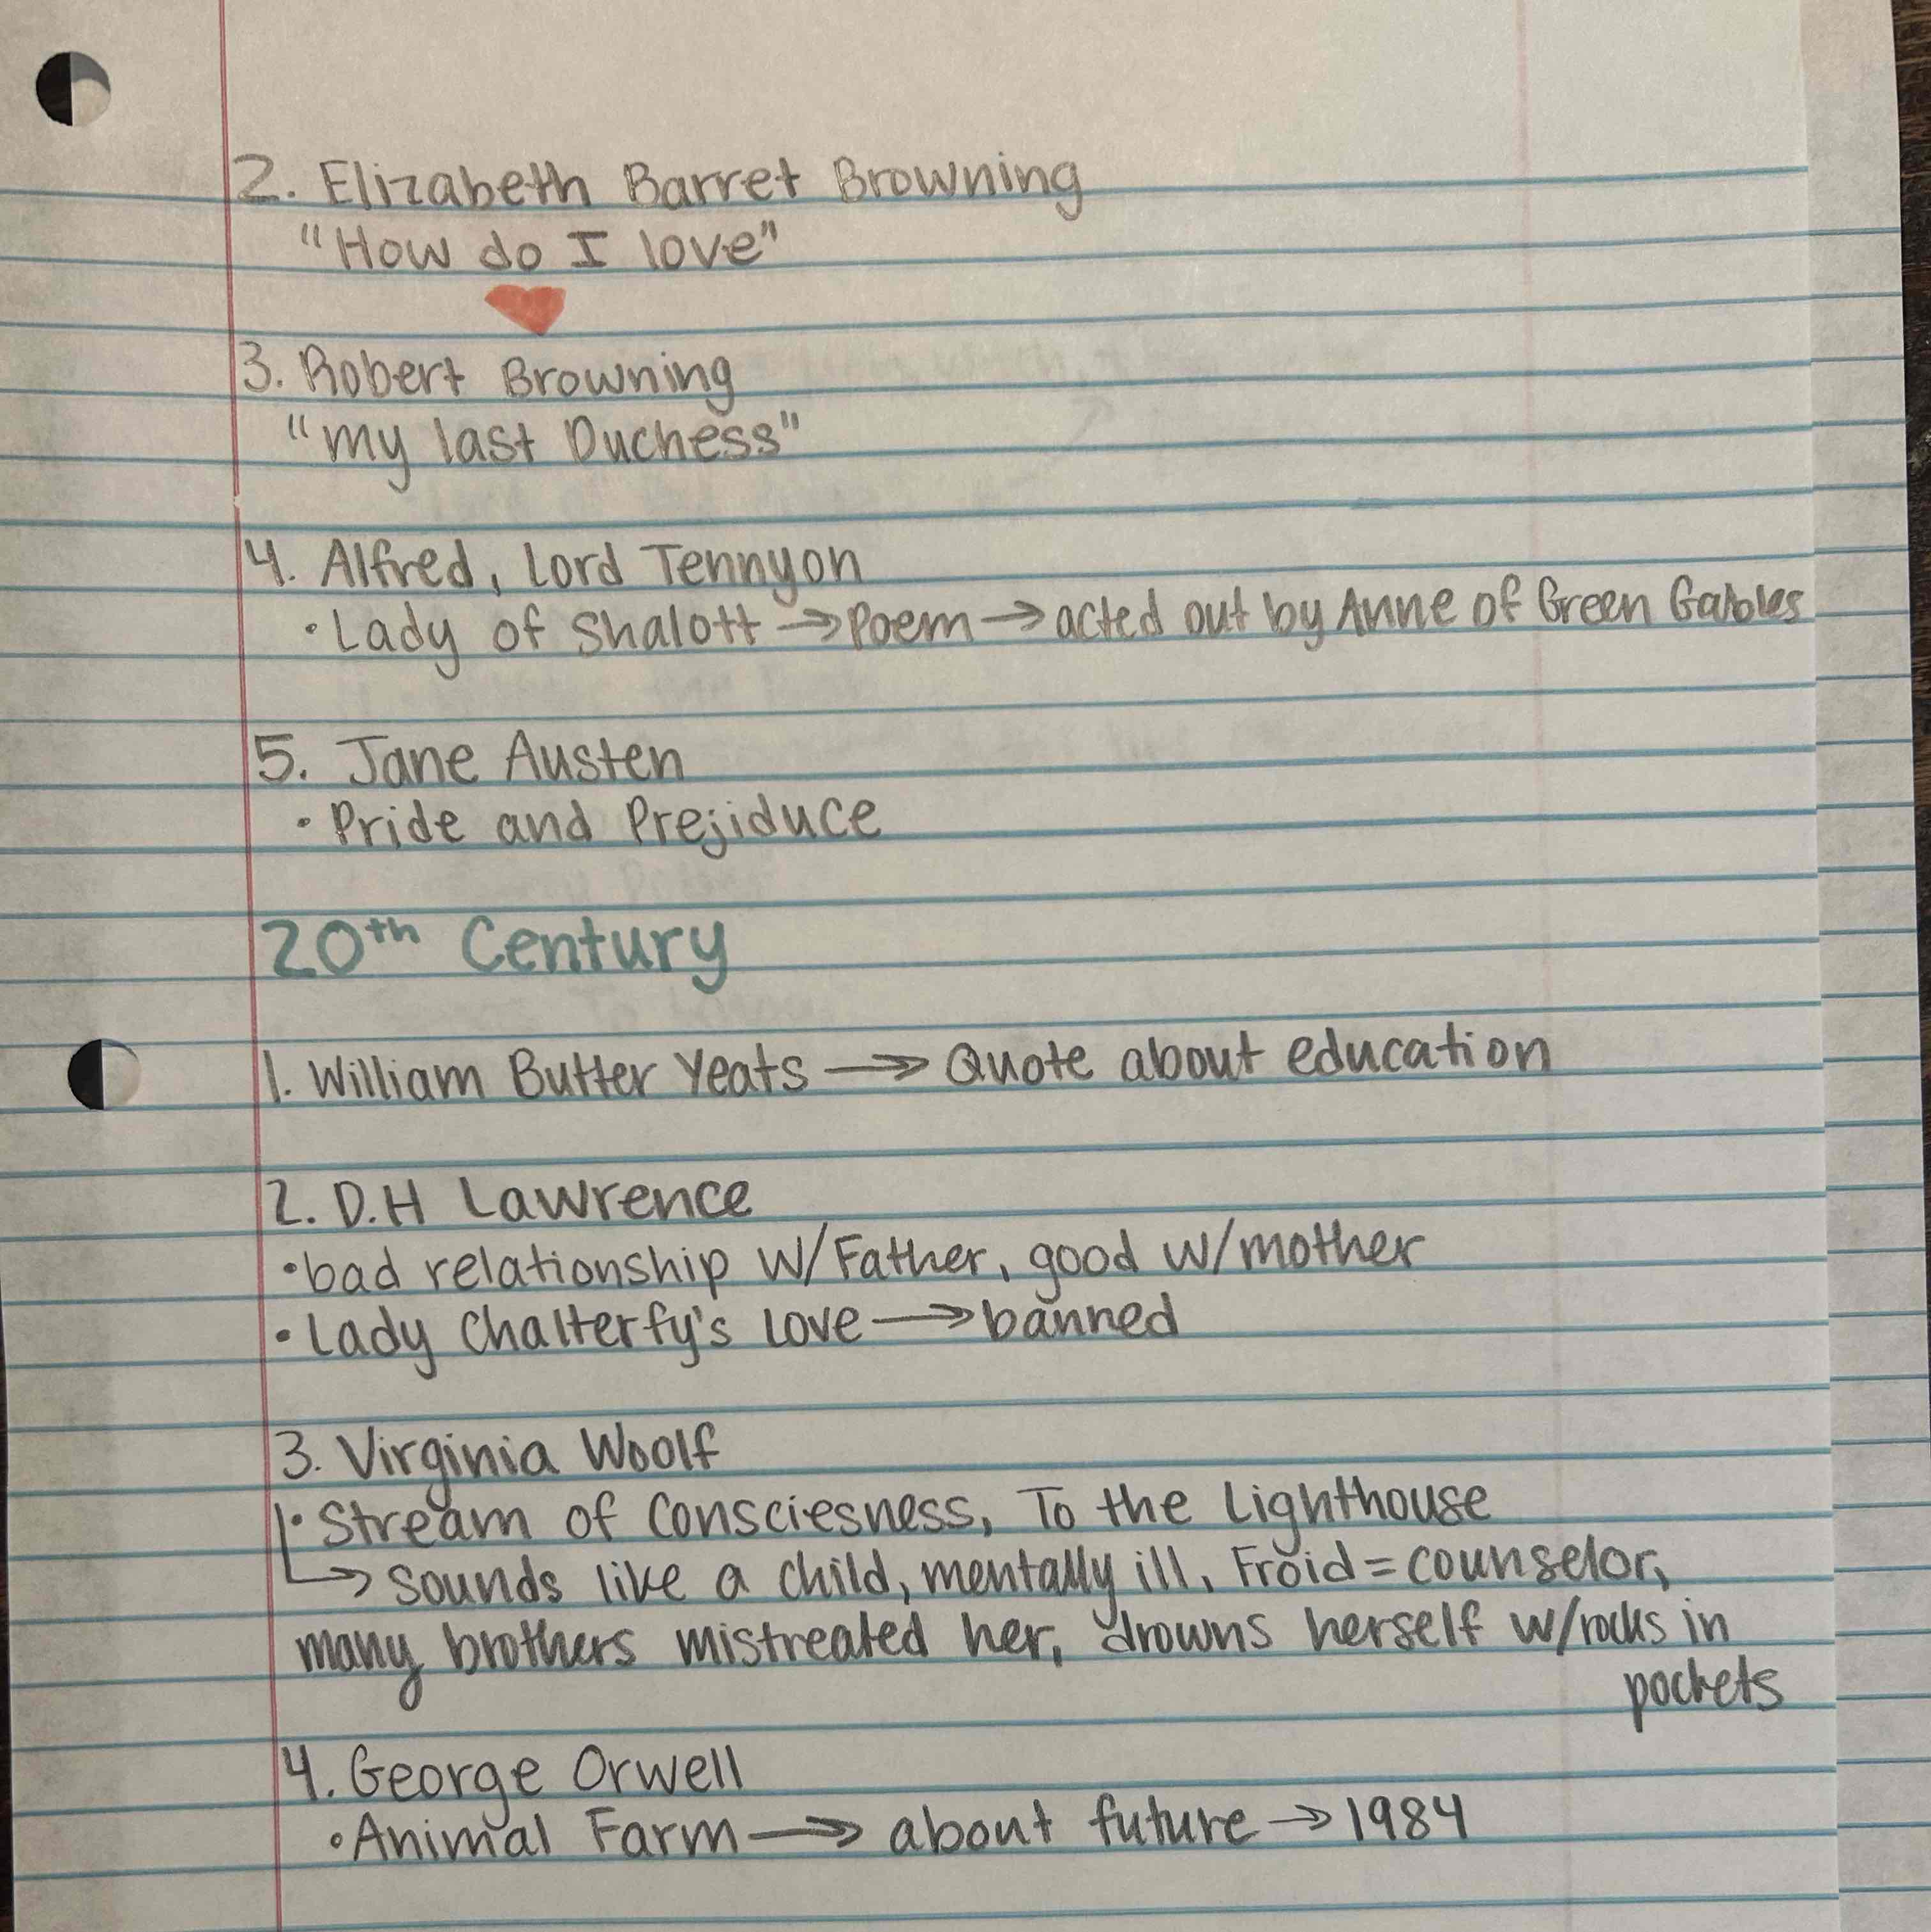 2. Elizabeth Barret Browning
"How do I love"
3. Robert Browning
"my last Duchess"
4. Alfred, Lord Tennyon
• Lady of Shalott → Poem → acted out by Anne of Green Gables
5. Jane Austen
• Pride and Prejiduce
20th Century
1. William Butter Yeats → Quote about education
2. D.H Lawrence
• bad relationship w/Father, good w/mother
• Lady Chalterfy's Love → banned
3. Virginia Woolf
• Stream of Consciesness, To the Lighthouse
↳ Sounds like a child, mentally ill, Froid = counselor,
many brothers mistreated her, drowns herself w/rocks in
pockets
4. George Orwell
• Animal Farm → about future → 1984